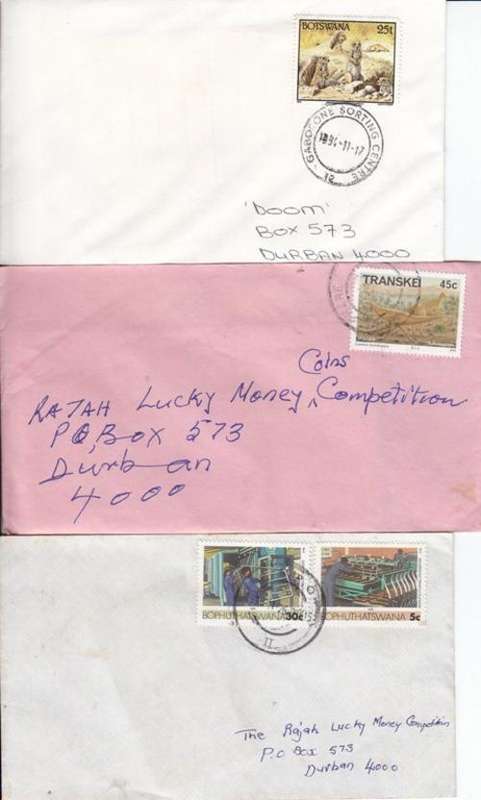 BOTSWANA
25t
GABORONE SORTING CENTRE
1994-11-17
12
'DOOM'
BOX 573
DURBAN 4000
TRANSKEI 45c
Coins
RAJAH Lucky Money ^ Competition
P.O, Box 573
Durban
4000
BOPHUTHATSWANA 30c
BOPHUTHATSWANA 5c
11
The Rajah Lucky Money Competition
P.O Box 573
Durban 4000